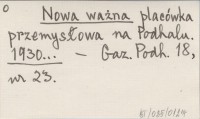 o
Nowa ważna placówka
przemysłowa na Podhalu.
1930... — Gaz. Podh. 18,
nr 23.